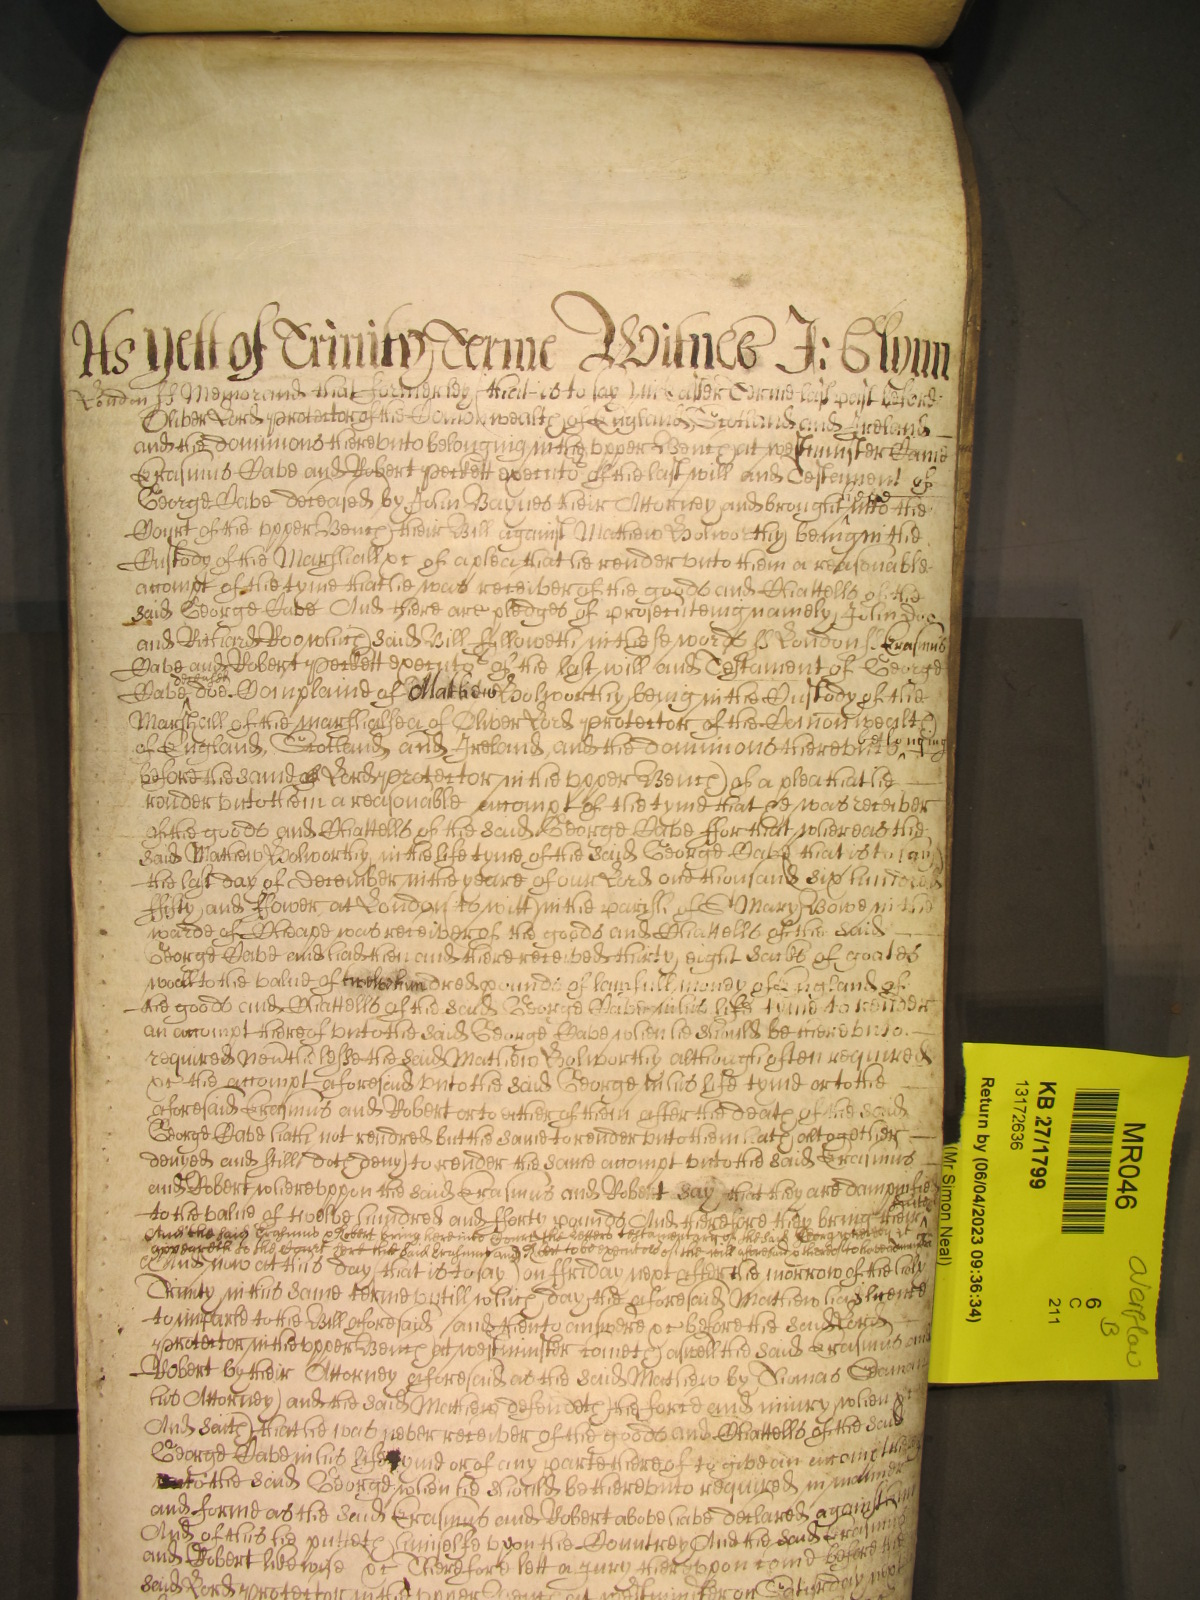 As yett of Trinity Terme Witnes J: Glynn
London ss Memorand that formerley (that is to say) in Easter Terme last past before
Oliver Lord protector of the Comonwealth of England Scotland and Ireland
and the dominions therevnto belonging in the vpper Bench at westminster Came
Erasmus Dabe and Robert Peckett executors of the last will and Testement of
George Dabe deceased by John Baynes their Attorney and brought into the
Court of the vpper Bench their Bill against Mathew Bolworthy being in the
Custody of the Marshall &c of a plea that he render vnto them a reasonable
accompt of the tyme that he was receiver of the goods and Chattells of the
said George Dabe And there are pledges of prosecuteing namely John Doe
and Richard Roo which said Bill followeth in these words ss London ss Erasmus
Dabe and Robert Peckett executors of the last will and Testament of George
Dabe deceased Complaine of Mathew Bolworthy being in the Custody of the
Marshall of the marshallsea of Oliver Lord protector of the Comonwealth
of England, Scotland and Ireland and the dominions therevnto belonging
before the said Lord protector in the vpper Bench of a plea that he
render vnto them a reasonable accompt of the tyme that he was receiver
of the goods and Chattells of the said George Dabe ffor that whereas the
said Mathew Bolworthy in the life tyme of the said George Dabe that is to say
the last day of December in the yeare of our Lord one thousand six hundred
ffifty and ffower at London to witt in the parish of St Mary Bowe in the
warde of Cheape was receiver of the goods and Chattells of the said
George Dabe and had then and there received thirty eight sacks of goates
wooll to the value of twelve hundred pounds of lawfull money of England of
the goods and Chattells of the said George Dabe in his life tyme to render
an accompt thereof vnto the said George Dabe when he should be therevnto
required Neverthelesse the said Mathew Bolworthy although often required
&c the accompt aforesaid vnto the said George in his life tyme or to the
aforesaid Erasmus and Robert or to either of them after the death of the said
George Dabe hath not rendred but the same to render vnto them hath altogether
denyed and still doth deny to render the same accompt vnto the said Erasmus
and Robert wherevppon the said Erasmus and Robert say that they are dampnified
to the value of twelve hundred and fforty pounds And therefore they bring their suite
And the said Erasmus & Robert bring here into Court the letters testamentary of the said George
appeareth to the Court here that the said Erasmus and Robert to be executors of the will aforesaid & thereof to have
And now at this day (that is to say) on ffriday next after the morrow of the holy
Trinity in this same terme vntill which day the aforesaid Mathew had licence
to imparle to the Bill aforesaid and then to answere &c before the said Lord
protector in the vpper Bench at westminster cometh aswell the said Erasmus and
Robert by their Attorney aforesaid as the said Mathew by Thomas
his Attorney) and the said Mathew defendeth the force and iniury when &c
And saith) that he was never receiver of the goods and Chattells of the said
George Dabe in his life tyme or of any parte thereof to give an accompt
vnto the said George when he should be therevnto required in manner
and forme as the said Erasmus and Robert above have declared against him
And of this he putteth himselfe vpon the Countrey And the said Erasmus
and Robert likewise &c Therefore lett a Jury therevpon come before the
said Lord protector in the vpper Bench at westminster on Saturday next
MR046
KB 27/1799
13172636
Return by (06/04/2023 09:36:34)
(Mr Simon Neal)
6
C
211
Overflow
B